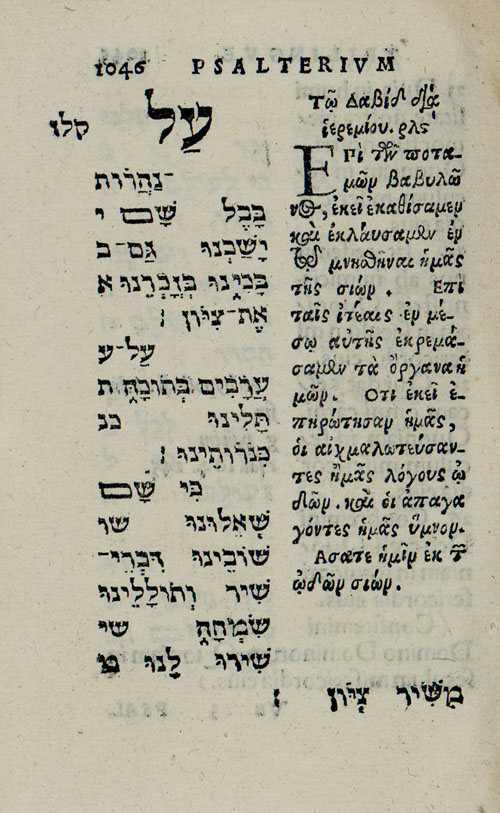 1046 PSALTERIVM
עַל קלז
נַהֲרוֹת־
בָּבֶל שָׁם י
יָשַׁבְנוּ גַּם־ב
בָּכִינוּ בְּזָכְרֵנוּ א
אֶת־צִיּוֹן׃
עַל־ע
עֲרָבִים בְּתוֹכָהּ ת
תָּלִינוּ כנ
כִּנֹּרוֹתֵינוּ׃
כִּי שָׁם
שְׁאֵלוּנוּ שו
שׁוֹבֵינוּ דִּבְרֵי־
שִׁיר וְתוֹלָלֵינוּ
שִׂמְחָה שי
שִׁירוּ לָנוּ מ
מִשִּׁיר צִיּוֹן׃
Τῷ Δαβὶδ διὰ
ἱερεμίου. ρλϛ
Ἐπὶ τῶν ποτα-
μῶν βαβυλῶ
νος, ἐκεῖ ἐκαθίσαμεν
καὶ ἐκλαύσαμεν ἐν
τῷ μνηθῆναι ἡμᾶς
τῆς σιών. Επὶ
ταῖς ἰτέαις ἐν μέ-
σῳ αὐτῆς ἐκρεμά-
σαμεν τὰ ὄργανα ἡ
μῶν. Οτι ἐκεῖ ἐ-
πηρώτησαν ἡμᾶς,
οἱ αἰχμαλωτεύσαν-
τες ἡμᾶς λόγους ᾠ
δῶν. καὶ οἱ ἀπαγα
γόντες ἡμᾶς ὕμνον.
Ασατε ἡμῖν ἐκ τῶν
ᾠδῶν σιών.